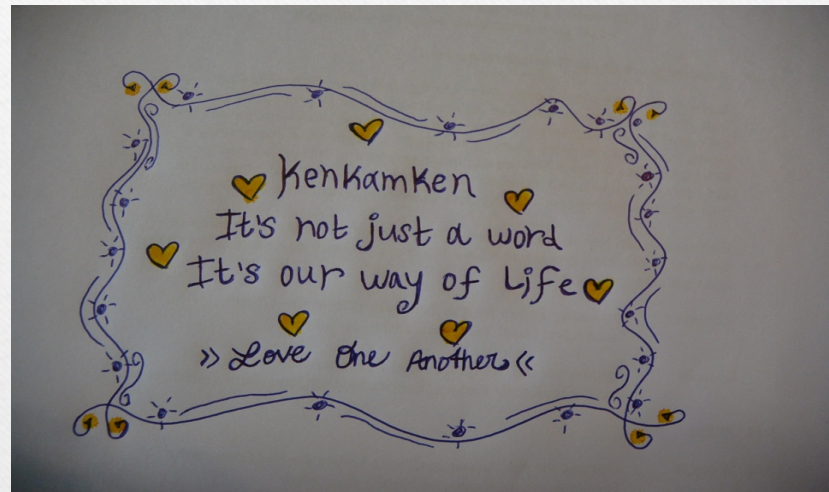 KenKamKen
It's not just a word
It's our way of Life
>> Love One Another <<